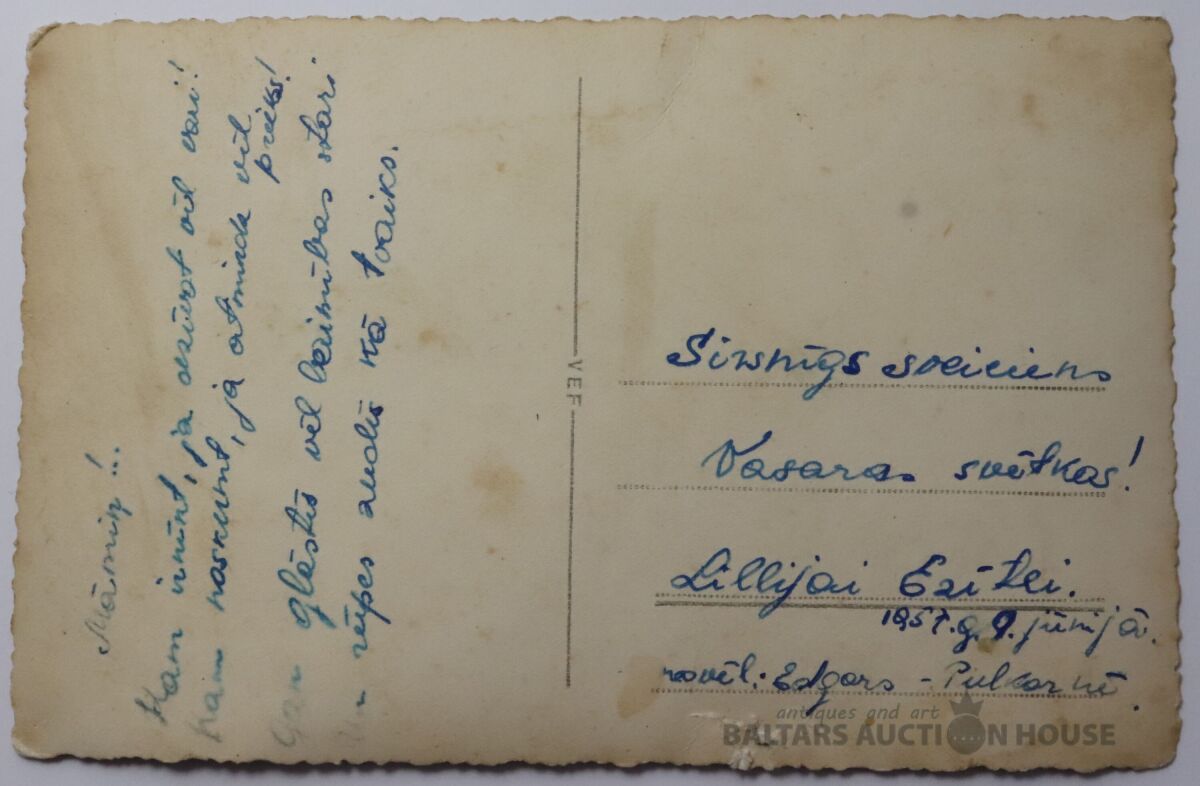 Māmiņ!...
Kam izmīnt, ja aizvērt vēl vari!
Kam noskumt, ja atmiņda vēl prieks!
Gan glāstīs vēl laimības stari
Un rūpes audīs kā tvaiks.
VEF
Sirsnīgs sveiciens
Vasaras svētkos!
Lillijai Ezītei.
1957.g. 9. jūnijā.
novēl: Edgars - Pulkarnē.
antiques and art
BALTARS AUCTION HOUSE